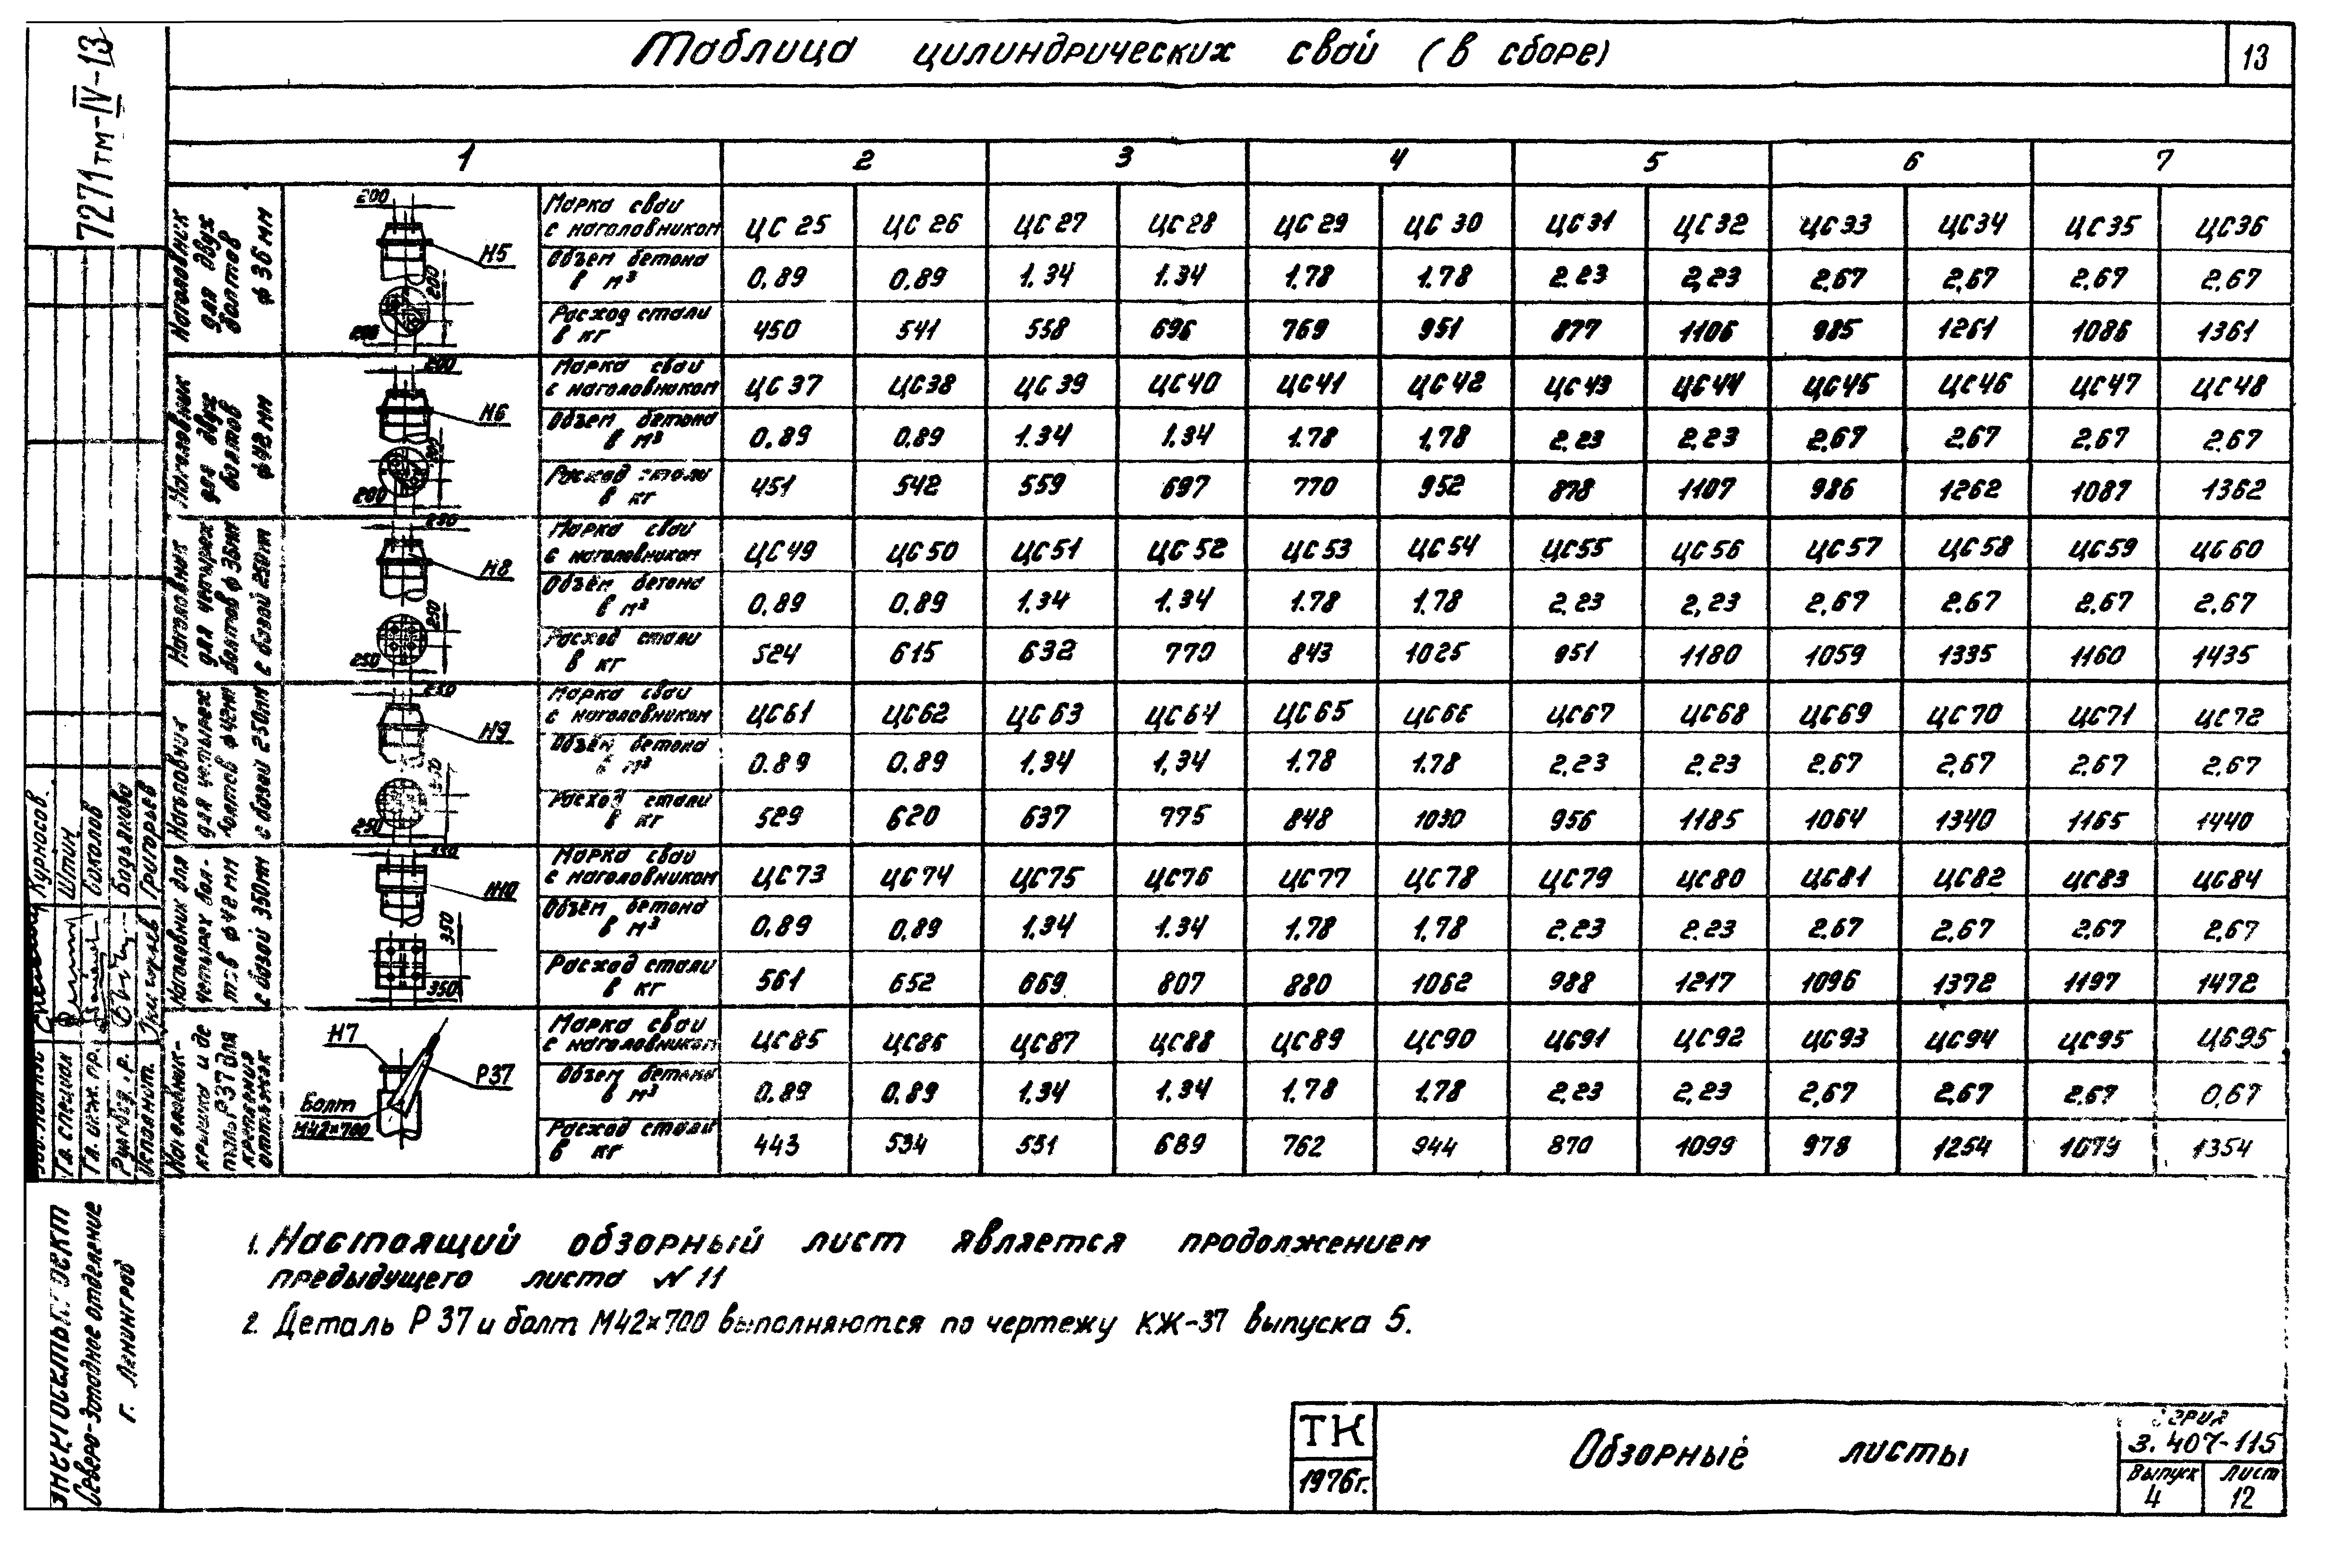 Таблица цилиндрических свай (в сборе)
13
7271тм-IV-13
1 2 3 4 5 6 7
Наголовник для двух болтов ф 36 мм
200
Н5
200
Марка сваи с наголовником
ЦС 25 ЦС 26 ЦС 27 ЦС28 ЦС 29 ЦС 30 ЦС31 ЦС32 ЦС33 ЦС34 ЦС35 ЦС36
Объем бетона в м³
0.89 0.89 1.34 1.34 1.78 1.78 2.23 2,23 2,67 2,67 2,67 2,67
Расход стали в кг
450 541 558 696 769 951 877 1106 985 1261 1086 1361
Наголовник для двух болтов ф42 мм
200
Н6
200
200
Марка сваи с наголовником
ЦС 37 ЦС38 ЦС 39 ЦС40 ЦС41 ЦС 42 ЦС43 ЦС44 ЦС45 ЦС46 ЦС47 ЦС48
Объем бетона в м³
0.89 0.89 1.34 1.34 1.78 1,78 2,23 2,23 2,67 2,67 2,67 2.67
Расход стали в кг
451 542 559 697 770 952 878 1107 986 1262 1087 1362
Наголовник для четырех болтов ф 36мм с базой 250мм
250
Н8
250
250
Марка сваи с наголовником
ЦС49 ЦС 50 ЦС51 ЦС 52 ЦС 53 ЦС 54 ЦС55 ЦС 56 ЦС 57 ЦС 58 ЦС59 ЦС 60
Объём бетона в м³
0,89 0,89 1,34 1,34 1.78 1,78 2,23 2,23 2,67 2.67 2,67 2.67
Расход стали в кг
524 615 632 770 843 1025 951 1180 1059 1335 1160 1435
Наголовник для четырех болтов ф42мм с базой 250мм
250
Н9
250
Марка сваи с наголовником
ЦС61 ЦС62 ЦС 63 ЦС64 ЦС 65 ЦС66 ЦС67 ЦС68 ЦС69 ЦС 70 ЦС71 ЦС72
Объём бетона в м³
0.89 0.89 1,34 1,34 1.78 1.78 2,23 2.23 2.67 2,67 2.67 2,67
Расход стали в кг
529 620 637 775 848 1030 956 1185 1064 1340 1165 1440
Наголовник для четырех болтов ф 42 мм с базой 350мм
Н10
350
350
Марка сваи с наголовником
ЦС73 ЦС 74 ЦС75 ЦС76 ЦС77 ЦС 78 ЦС79 ЦС80 ЦС81 ЦС82 ЦС83 ЦС84
Объём бетона в м³
0,89 0,89 1,34 1.34 1.78 1,78 2.23 2.23 2,67 2,67 2,67 2,67
Расход стали в кг
561 652 669 807 880 1062 988 1217 1096 1372 1197 1472
Н7
Р37
Болт
М42×700
Марка сваи с наголовником
ЦС85 ЦС86 ЦС87 ЦС88 ЦС 89 ЦС90 ЦС91 ЦС92 ЦС93 ЦС94 ЦС95 ЦС95
Объем бетона в м³
0.89 0.89 1,34 1,34 1.78 1.78 2,23 2,23 2,67 2,67 2,67 0,67
Расход стали в кг
443 534 551 689 762 944 870 1099 978 1254 1079 1354
1. Настоящий обзорный лист является продолжением
предыдущего листа N 11
2. Деталь Р 37 и болт М42×700 выполняются по чертежу КЖ-37 выпуска 5.
Курносов.
Штин
Соколов
Водьяково
Григорьев
Гл. специал
Гл. инж. пр.
Исполнит.
ЭНЕРГОСЕТЬПРОЕКТ
Северо-Западное отделение
г. Ленинград
ТК
1976г.
Обзорные листы
Серия
3.407-115
Выпуск
4
Лист
12